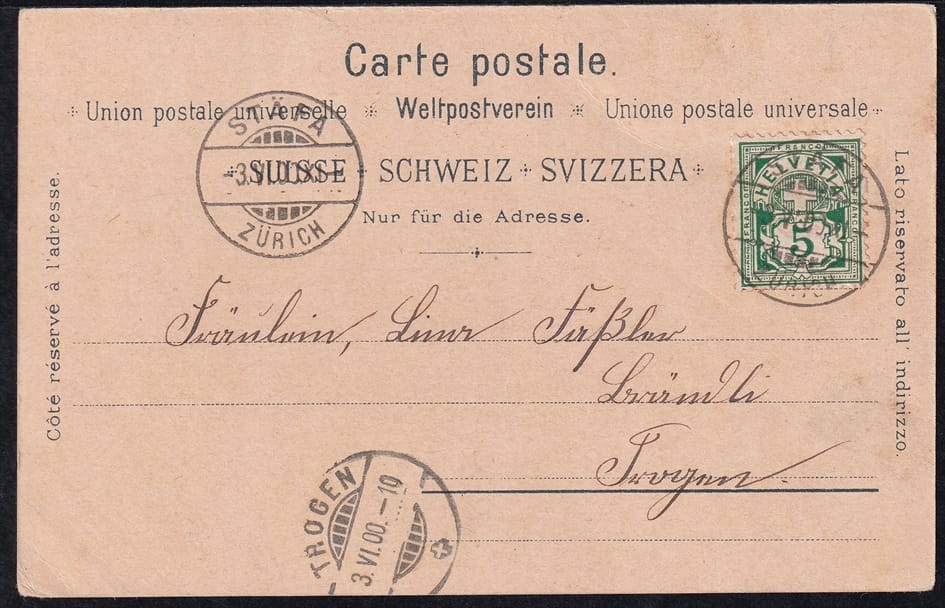 Carte postale.
Union postale universelle * Weltpostverein * Unione postale universale
SUISSE + SCHWEIZ + SVIZZERA
Nur für die Adresse.
Côte réservé à l'adresse.
Lato riservato all' indirizzo.
STÄFA
3.VI.00.XI
ZÜRICH
FRANCO
HELVETIA
5
FRANCO
FRANCO
Fräulein, Lina Fäßler
Brändli
Trogen.
TROGEN
3.VI.00.-10